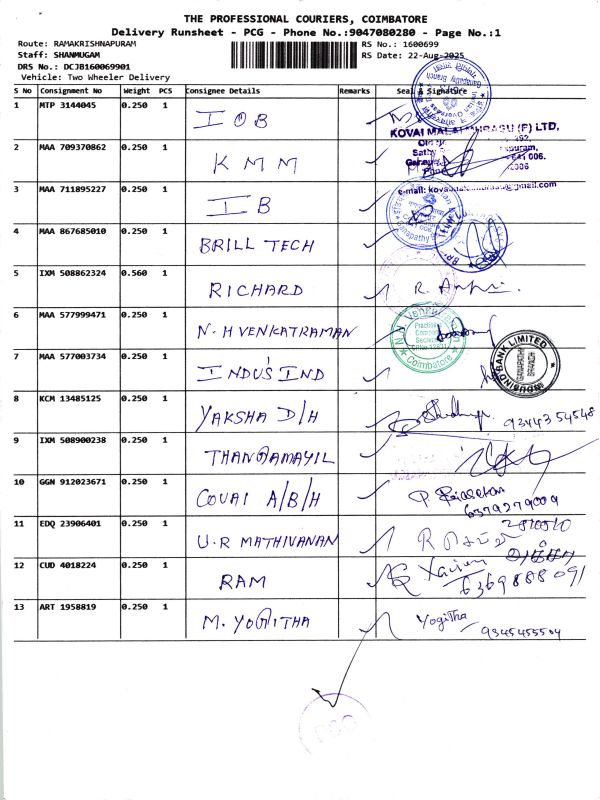 THE PROFESSIONAL COURIERS, COIMBATORE
Delivery Runsheet - PCG - Phone No.:9047080280 - Page No.:1
Route: RAMAKRISHNAPURAM
RS No.: 1600699
Staff: SHANMUGAM
RS Date: 22-Aug-2025
DRS No.: DCJB160069901
Vehicle: Two Wheeler Delivery
S No Consignment No Weight PCS Consignee Details Remarks Seal & Signature
1 MTP 3144045 0.250 1 IOB
KOVAI MALAI MURASU (P) LTD,
2 MAA 709370862 0.250 1 KMM
641 006.
3 MAA 711895227 0.250 1 IB
4 MAA 867685010 0.250 1 BRILL TECH
5 IXM 508862324 0.560 1 RICHARD
6 MAA 577999471 0.250 1 N.H VENKATRAMAN
Coimbatore
7 MAA 577003734 0.250 1 INDUS'IND
INDUSIND BANK LIMITED
8 KCM 13485125 0.250 1 YAKSHA D/H 9344354548
9 IXM 508900238 0.250 1 THANGAMAYIL
10 GGN 912023671 0.250 1 COVAI A/B/H
6379279009
11 EDQ 23906401 0.250 1 U.R MATHIVANAN
12 CUD 4018224 0.250 1 RAM 6369888091
13 ART 1958819 0.250 1 M. YOGITHA Yogitha
9345455504